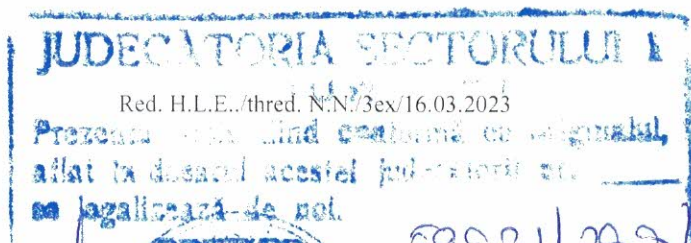 JUDECATORIA SECTORULUI 1
Red. H.L.E../thred. N.N./3ex/16.03.2023
Prezenta fiind conformă cu originalul,
aflat la dosarul acestei judecatorii nr.
se legalizează de noi.